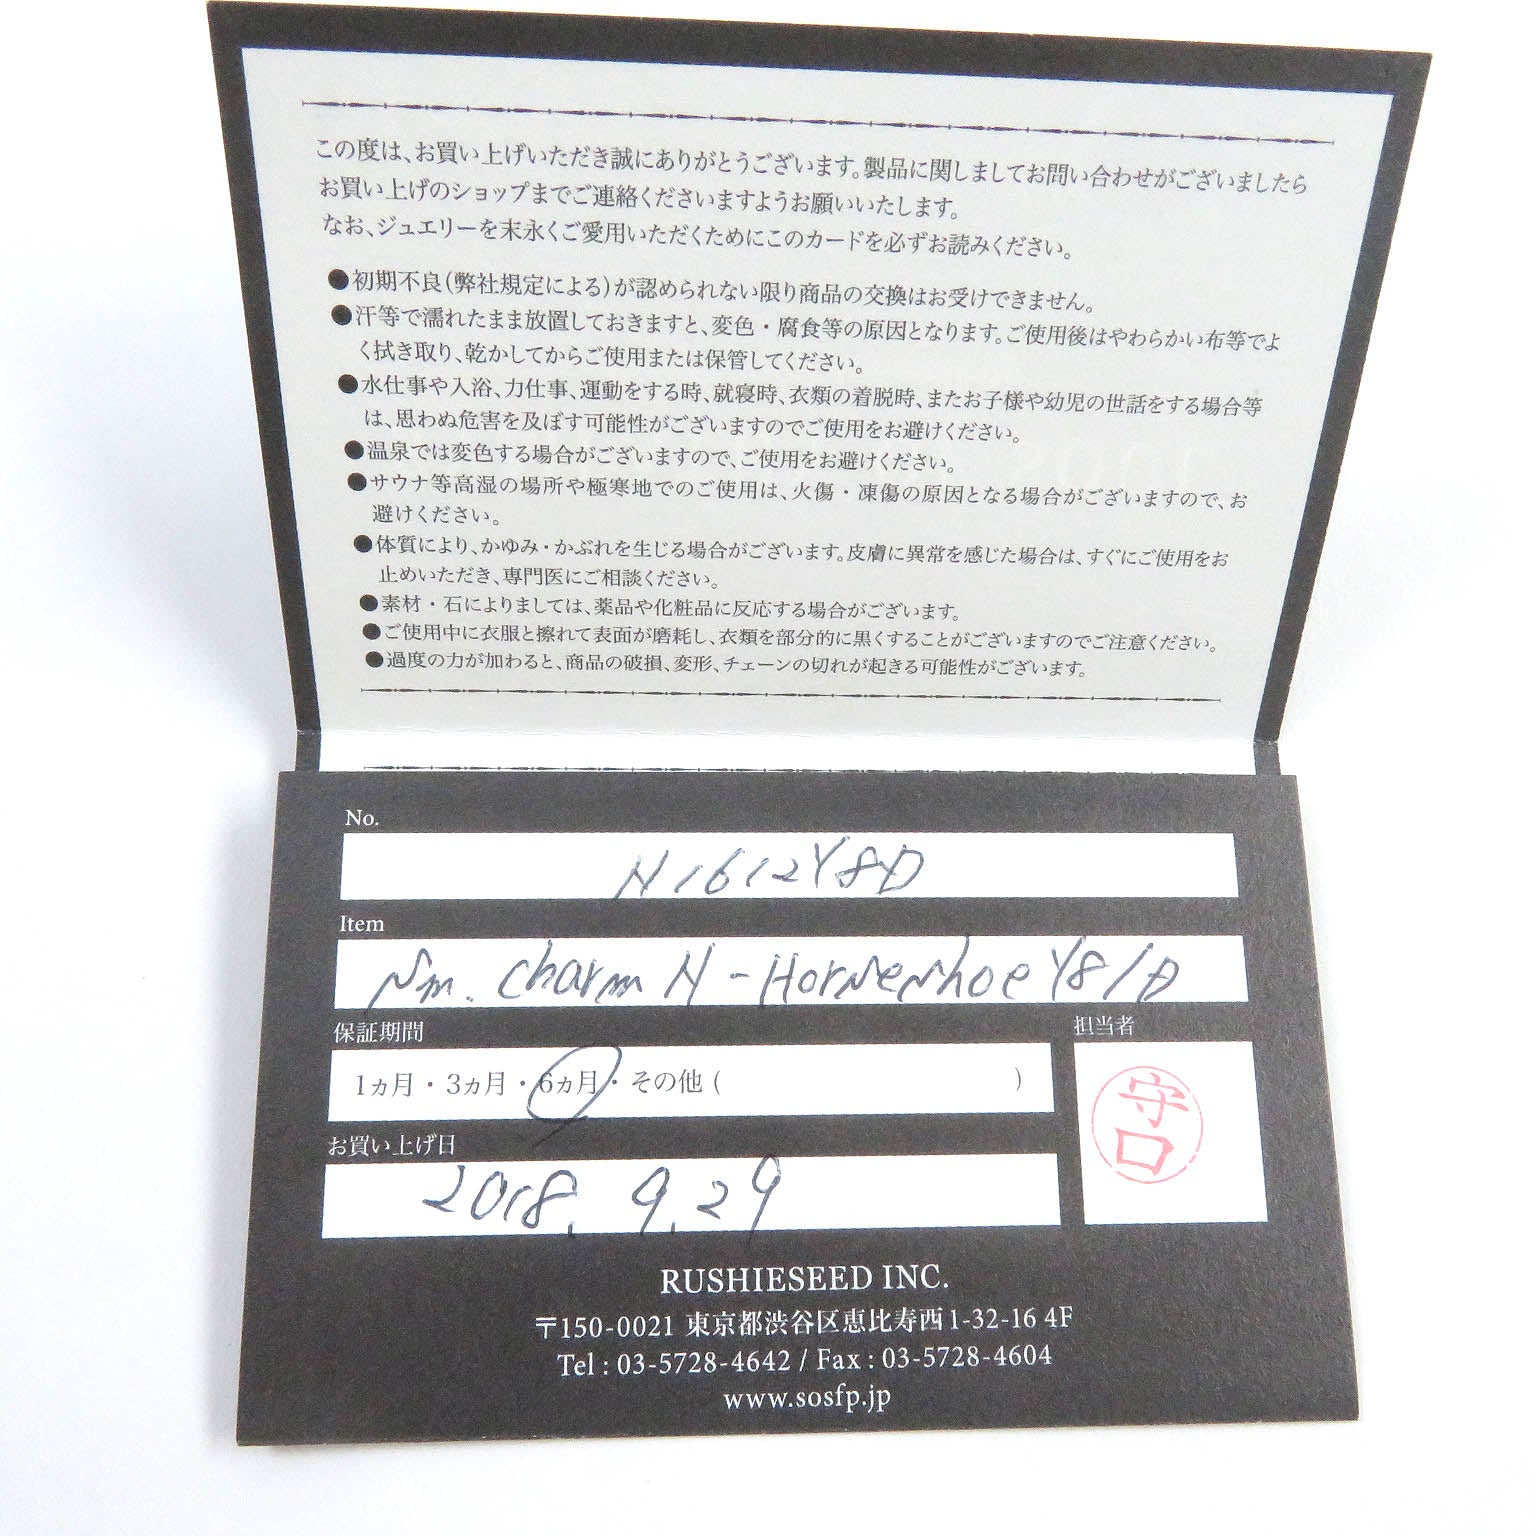 この度は、お買い上げいただき誠にありがとうございます。製品に関しましてお問い合わせがございましたら
お買い上げのショップまでご連絡くださいますようお願いいたします。
なお、ジュエリーを末永くご愛用いただくためにこのカードを必ずお読みください。
●初期不良(弊社規定による)が認められない限り商品の交換はお受けできません。
●汗等で濡れたまま放置しておきますと、変色・腐食等の原因となります。ご使用後はやわらかい布等でよ
く拭き取り、乾かしてからご使用または保管してください。
●水仕事や入浴、力仕事、運動をする時、就寝時、衣類の着脱時、またお子様や幼児の世話をする場合等
は、思わぬ危害を及ぼす可能性がございますのでご使用をお避けください。
●温泉では変色する場合がございますので、ご使用をお避けください。
●サウナ等高湿の場所や極寒地でのご使用は、火傷・凍傷の原因となる場合がございますので、お
避けください。
●体質により、かゆみ・かぶれを生じる場合がございます。皮膚に異常を感じた場合は、すぐにご使用をお
止めいただき、専門医にご相談ください。
●素材・石によりましては、薬品や化粧品に反応する場合がございます。
●ご使用中に衣服と擦れて表面が磨耗し、衣類を部分的に黒くすることがございますのでご注意ください。
●過度の力が加わると、商品の破損、変形、チェーンの切れが起きる可能性がございます。
No.
N1612Y8D
Item
Sm. charm N - Horseshoe Y8/D
保証期間
1ヵ月・3ヵ月・6ヵ月・その他( )
担当者
守口
お買い上げ日
2018. 9. 29
RUSHIESEED INC.
〒150-0021 東京都渋谷区恵比寿西1-32-16 4F
Tel : 03-5728-4642 / Fax : 03-5728-4604
www.sosfp.jp